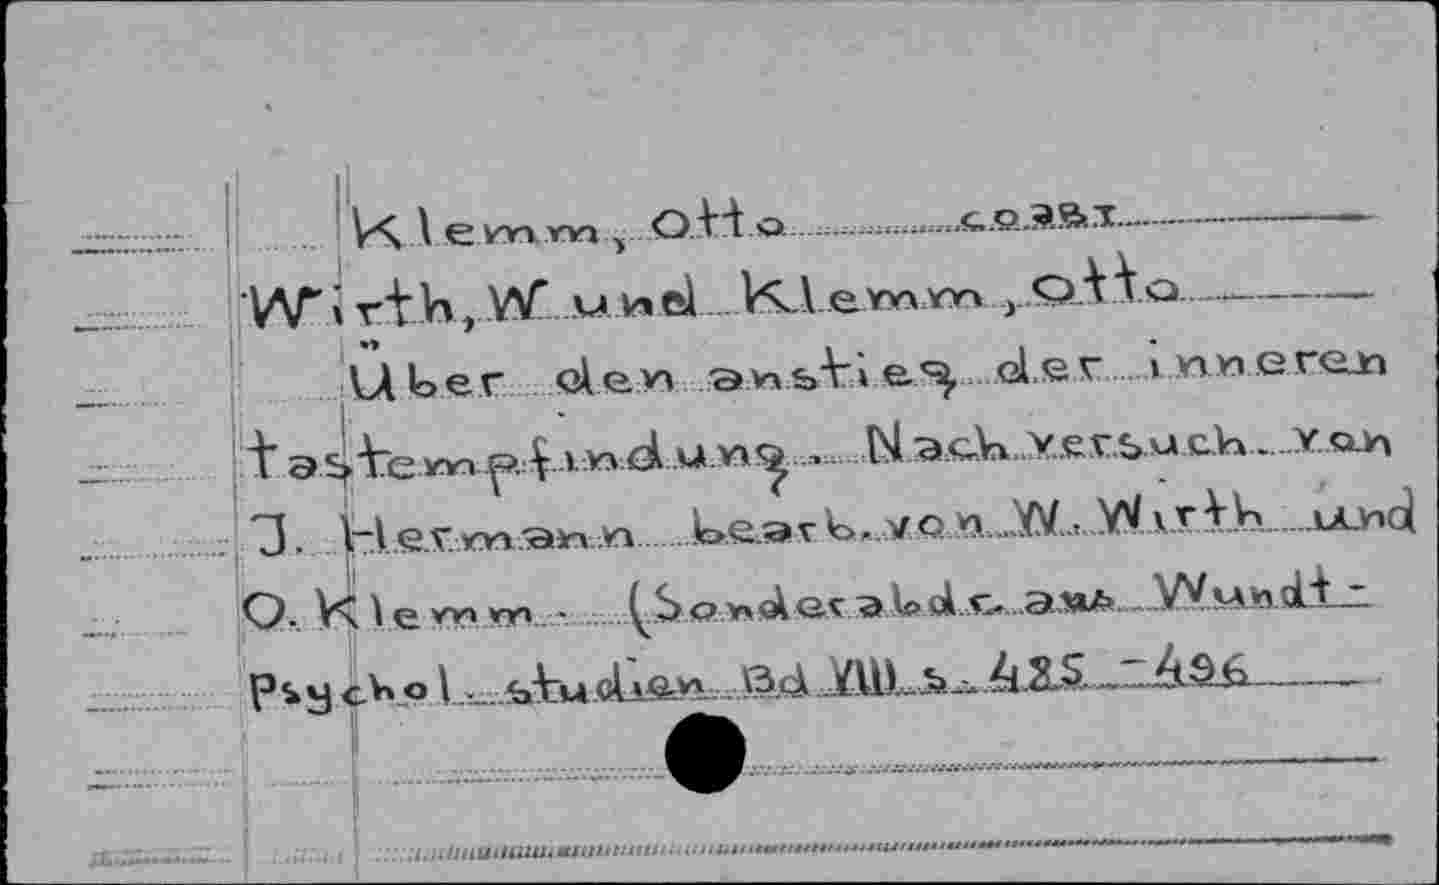 Klemm, Otto соавт
Wirth, W und Klemm, Otto
Über den anstieg der inneren
tastempfindung. Nach versuch. von
J. Hermann bearb. von W. Wirth und
O. Klemm. (Sonderabdr. aus Wundt-
Psychol. studien Bd VIII s. 485-496